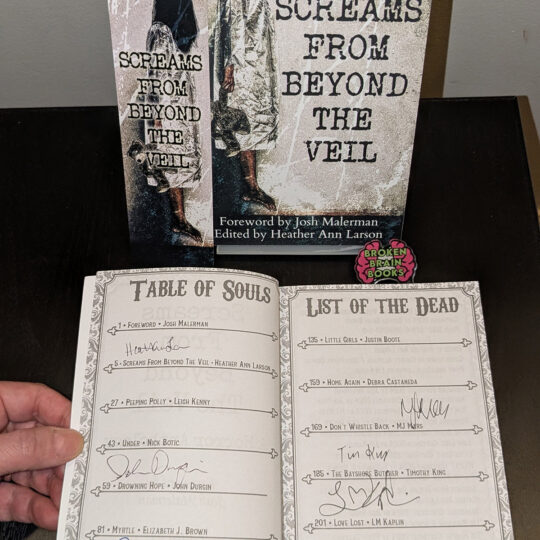 SCREAMS
FROM
BEYOND
THE
VEIL
SCREAMS
FROM
BEYOND
THE
VEIL
Foreword by Josh Malerman
Edited by Heather Ann Larson
BROKEN
BRAIN
BOOKS
TABLE OF SOULS
1 • FOREWORD • JOSH MALERMAN
5 • SCREAMS FROM BEYOND THE VEIL • HEATHER ANN LARSON
27 • PEEPING POLLY • LEIGH KENNY
43 • UNDER • NICK BOTIC
John Durgin
59 • DROWNING HOPE • JOHN DURGIN
81 • MYRTLE • ELIZABETH J. BROWN
LIST OF THE DEAD
135 • LITTLE GIRLS • JUSTIN BOOTE
159 • HOME AGAIN • DEBRA CASTANEDA
169 • DON'T WHISTLE BACK • MJ MARS
Tim King
185 • THE BAYSHORE BUTCHER • TIMOTHY KING
201 • LOVE LOST • LM KAPLIN